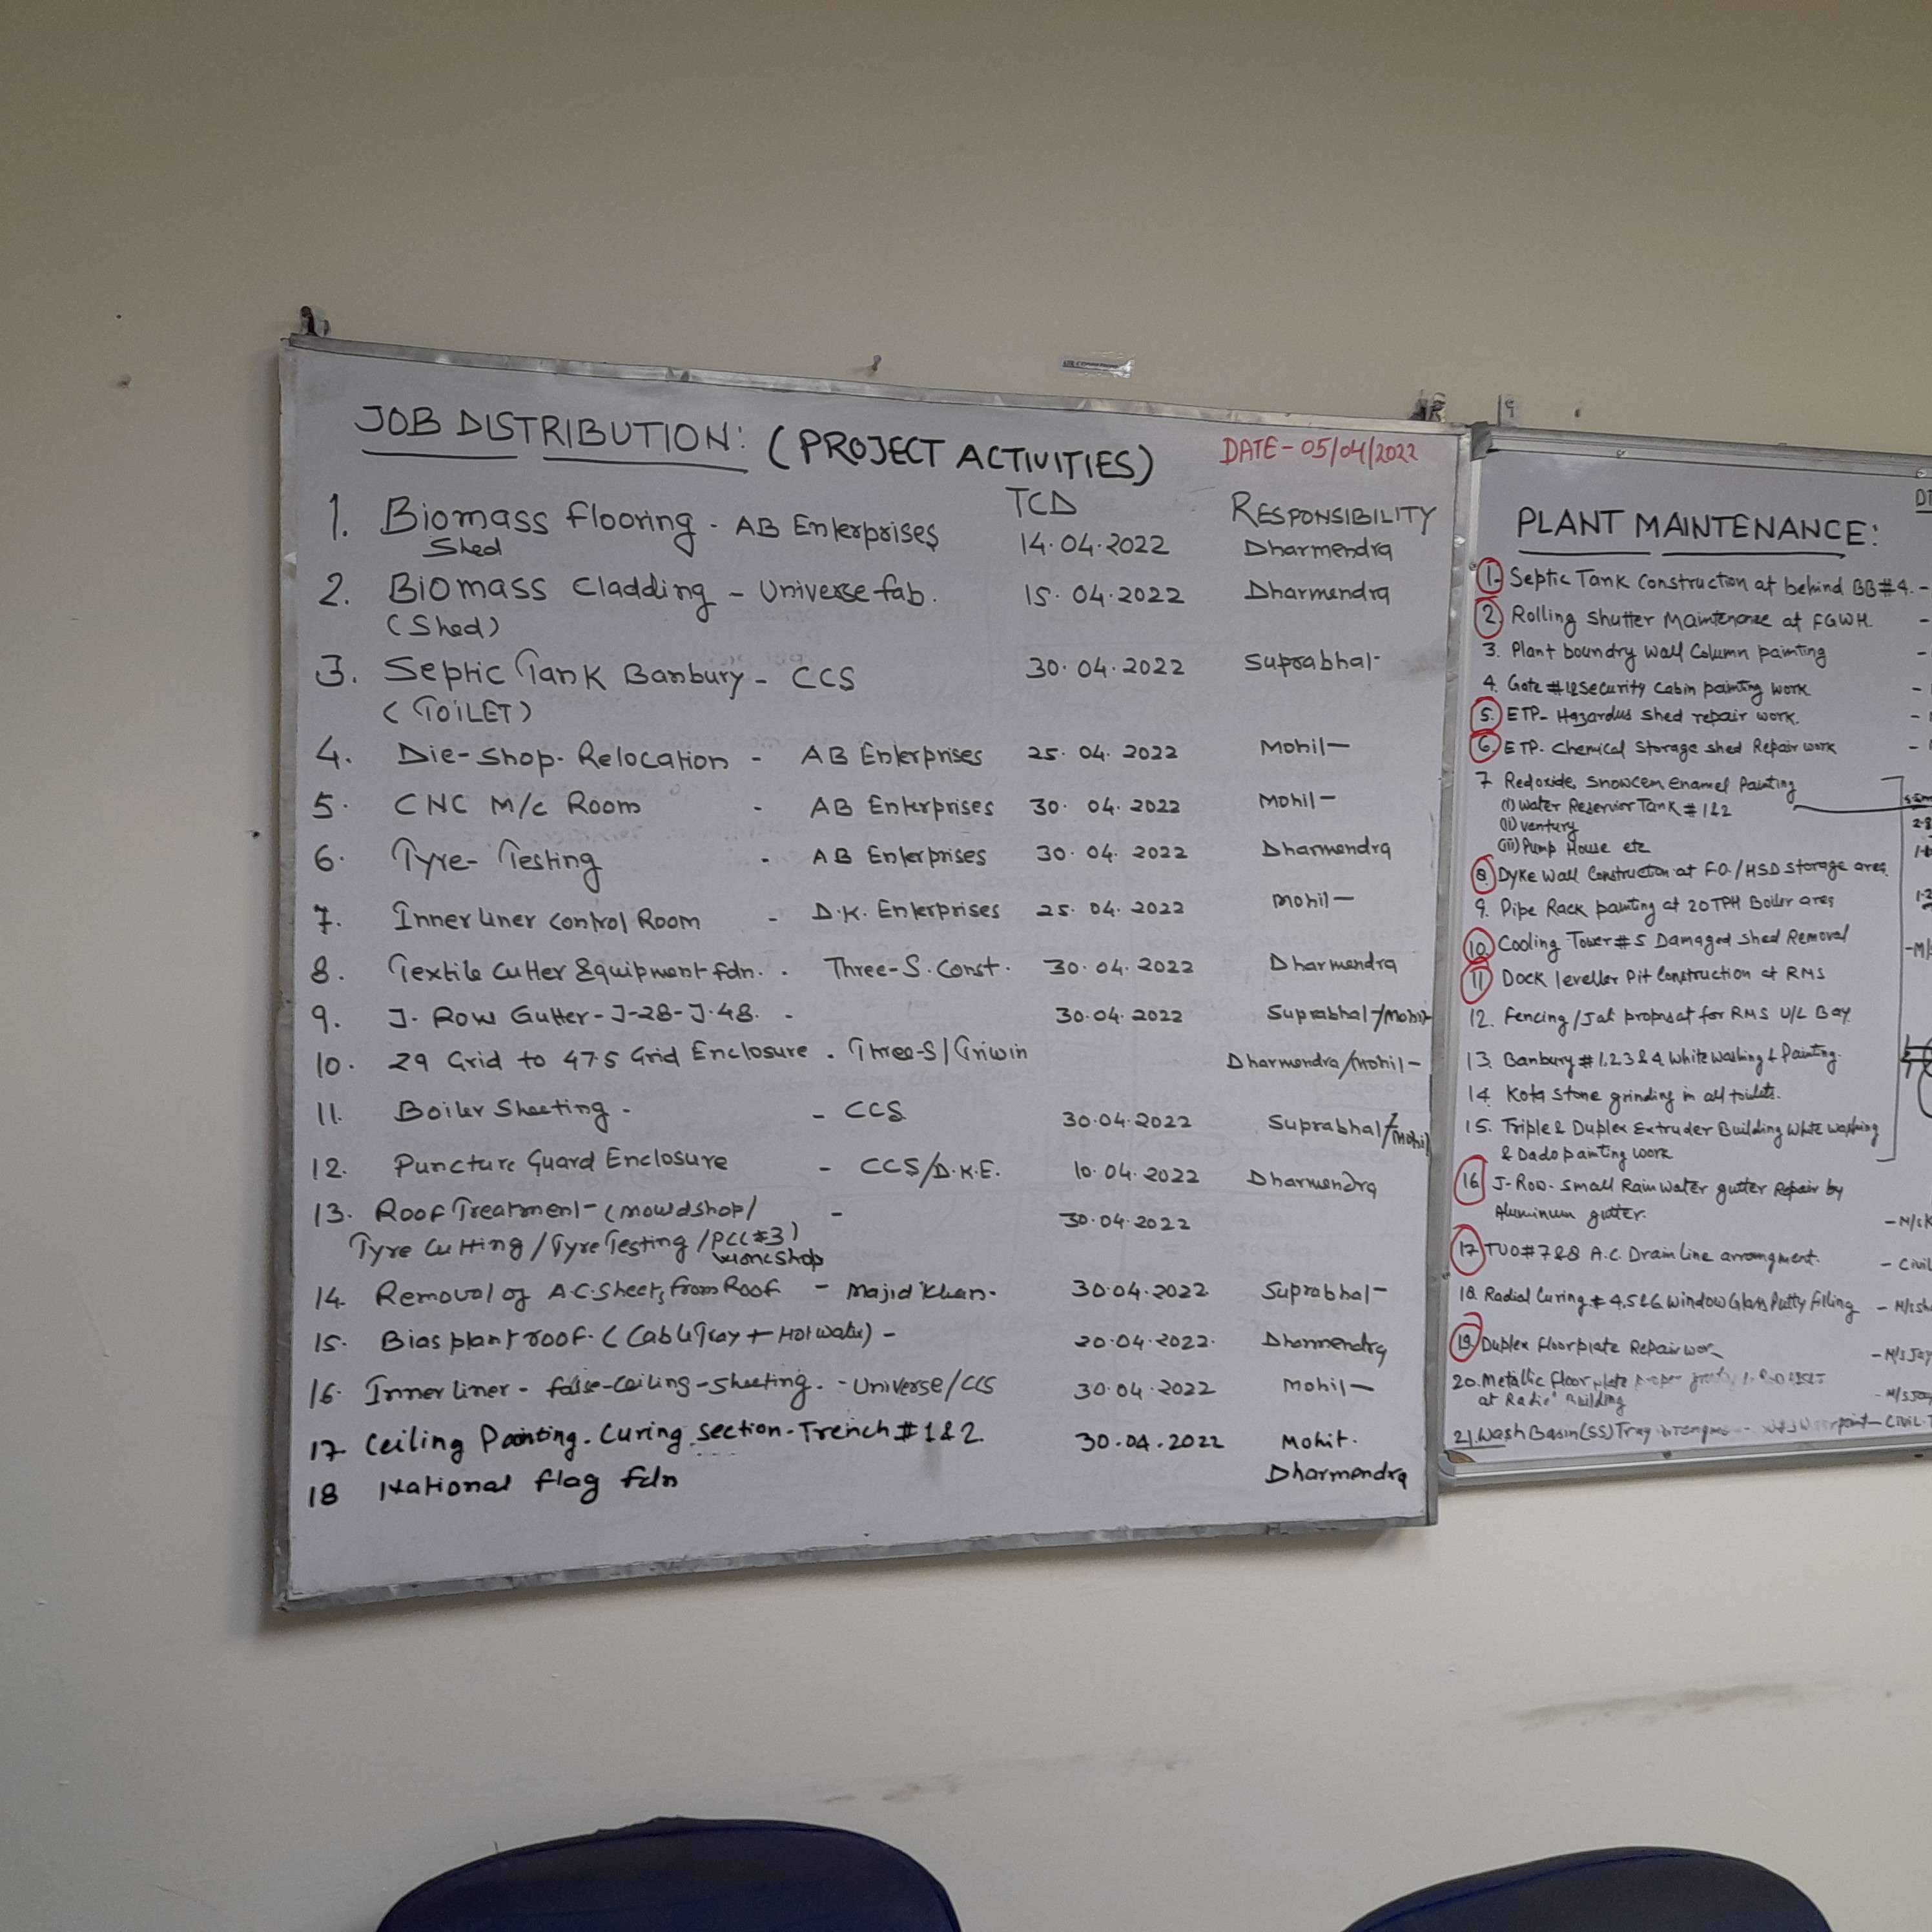 JOB DISTRIBUTION: (PROJECT ACTIVITIES) DATE - 05/04/2022
TCD RESPONSIBILITY
1. Biomass flooring - AB Enterprises 14.04.2022 Dharmendra
Shed
2. Biomass Cladding - Universe fab. 15.04.2022 Dharmendra
(Shed)
3. Septic Tank Banbury - CCS 30.04.2022 Suprabhat
(TOILET)
4. Die-Shop-Relocation - AB Enterprises 25.04.2022 Mohit
5. CNC M/c Room - AB Enterprises 30.04.2022 Mohit
6. Tyre-Testing - AB Enterprises 30.04.2022 Dharmendra
7. Inner liner control Room - D.K. Enterprises 25.04.2022 Mohit
8. Textile Cutter Equipment fdn. - Three-S.Const. 30.04.2022 Dharmendra
9. J-Row Gutter-J-28-J-48. - 30.04.2022 Suprabhat/Mohit
10. 29 Grid to 47.5 Grid Enclosure. Three-S/Griwin Dharmendra/Mohit
11. Boiler Sheeting. - CCS 30.04.2022 Suprabhat/Mohit
12. Puncture Guard Enclosure - CCS/D.K.E. 10.04.2022 Dharmendra
13. Roof Treatment-(mowdshop/ - 30.04.2022
Tyre Cutting/Tyre Testing/PCC#3)
14. Removal of A.C. Sheets from Roof - Majid Khan. 30.04.2022 Suprabhat
15. Bias plant roof. (Cable Tray + Hot water) - 20.04.2022. Dharmendra
16. Inner liner - false-ceiling-sheeting. - Universe/CCS 30.04.2022 Mohit
17 Ceiling Painting. Curing section-Trench #1&2. 30.04.2022 Mohit.
18 National flag fdn Dharmendra
PLANT MAINTENANCE:
1. Septic Tank Construction at behind BB#4. -
2. Rolling Shutter Maintenance at FGWH. -
3. Plant boundry Wall Column painting -
4. Gate #1&2 Security Cabin painting work -
5. ETP- Hazardus shed repair work. -
6. ETP- Chemical Storage shed Repair work -
7 Redoxide, Snowcem Enamel Painting
(i) Water Reservior Tank # 1&2
(ii) ventury
(iii) Pump House etc
8. Dyke Wall Construction at F.O./HSD storage area.
9. Pipe Rack painting at 20TPH Boiler area
10. Cooling Tower #5 Damaged shed Removal
11 Dock leveller Pit Construction at RMS
12. Fencing/Jali proposal for RMS U/L Bay
13. Banbury # 1,2,3 & 4 White washing & Painting.
14. Kota stone grinding in all toilets.
15. Triple & Duplex Extruder Building White washing
& Dado painting work
16 J-Row- Small Rain water gutter Repair by
Aluminum gutter.
17 TUO#7&8 A.C. Drain Line arrangment. - Civil
18. Radial Curing # 4,5&6 Window Glass Putty filling
19. Duplex Floorplate Repair work
20. Metallic floor plate proper
at Radial Building
21. Wash Basin (SS) Tray - Civil